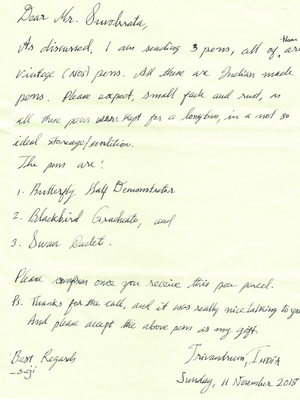 Dear Mr. Suvobrata,
As discussed, I am sending 3 pens, all of them are
Vintage (NOS) pens. All these are Indian made
pens. Please expect, small fade and rust, as
all these pens were kept for a longtime, in a not so
ideal storage/condition.
The pens are:
1. Butterfly Half Demonstrator
2. Blackbird Graduate, and
3. Swan Cadet.
Please confirm once you receive this pen parcel.
Ps. Thanks for the call, and it was really nice talking to you
And please accept the above pens as my gift.
Best Regards
Trivandrum, INDIA
- Saji
Sunday, 11 November 2018